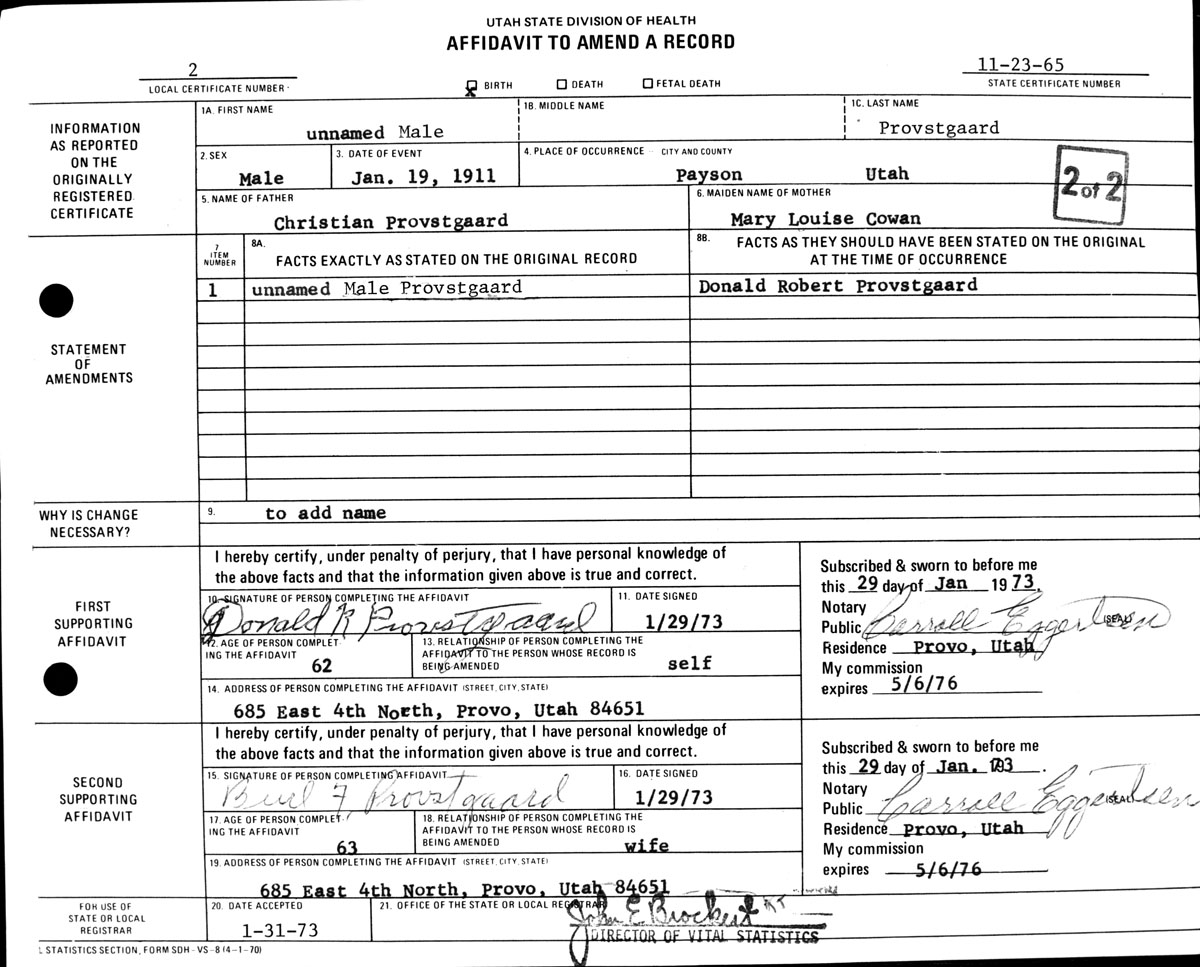 UTAH STATE DIVISION OF HEALTH
AFFIDAVIT TO AMEND A RECORD
2
LOCAL CERTIFICATE NUMBER
BIRTH DEATH FETAL DEATH
11-23-65
STATE CERTIFICATE NUMBER
INFORMATION
AS REPORTED
ON THE
ORIGINALLY
REGISTERED
CERTIFICATE
1A. FIRST NAME
unnamed Male
1B. MIDDLE NAME
1C. LAST NAME
Provstgaard
2. SEX
Male
3. DATE OF EVENT
Jan. 19, 1911
4. PLACE OF OCCURRENCE - CITY AND COUNTY
Payson Utah
2 of 2
5. NAME OF FATHER
Christian Provstgaard
6. MAIDEN NAME OF MOTHER
Mary Louise Cowan
STATEMENT
OF
AMENDMENTS
7
ITEM
NUMBER
8A.
FACTS EXACTLY AS STATED ON THE ORIGINAL RECORD
8B. FACTS AS THEY SHOULD HAVE BEEN STATED ON THE ORIGINAL
AT THE TIME OF OCCURRENCE
1 unnamed Male Provstgaard Donald Robert Provstgaard
WHY IS CHANGE
NECESSARY?
9. to add name
FIRST
SUPPORTING
AFFIDAVIT
I hereby certify, under penalty of perjury, that I have personal knowledge of
the above facts and that the information given above is true and correct.
10. SIGNATURE OF PERSON COMPLETING THE AFFIDAVIT
Donald R Provstgaard
11. DATE SIGNED
1/29/73
12. AGE OF PERSON COMPLET-
ING THE AFFIDAVIT
62
13. RELATIONSHIP OF PERSON COMPLETING THE
AFFIDAVIT TO THE PERSON WHOSE RECORD IS
BEING AMENDED
self
14. ADDRESS OF PERSON COMPLETING THE AFFIDAVIT (STREET, CITY, STATE)
685 East 4th North, Provo, Utah 84651
Subscribed & sworn to before me
this 29 day of Jan 1973.
Notary
Public Carroll Eggertsen (SEAL)
Residence Provo, Utah
My commission
expires 5/6/76
SECOND
SUPPORTING
AFFIDAVIT
I hereby certify, under penalty of perjury, that I have personal knowledge of
the above facts and that the information given above is true and correct.
15. SIGNATURE OF PERSON COMPLETING AFFIDAVIT
F Provstgaard
16. DATE SIGNED
1/29/73
17. AGE OF PERSON COMPLET-
ING THE AFFIDAVIT
63
18. RELATIONSHIP OF PERSON COMPLETING THE
AFFIDAVIT TO THE PERSON WHOSE RECORD IS
BEING AMENDED
wife
19. ADDRESS OF PERSON COMPLETING THE AFFIDAVIT (STREET, CITY, STATE)
685 East 4th North, Provo, Utah 84651
Subscribed & sworn to before me
this 29 day of Jan. 73.
Notary
Public Carroll Eggertsen (SEAL)
Residence Provo, Utah
My commission
expires 5/6/76
FOR USE OF
STATE OR LOCAL
REGISTRAR
20. DATE ACCEPTED
1-31-73
21. OFFICE OF THE STATE OR LOCAL REGISTRAR
John E Brockert
DIRECTOR OF VITAL STATISTICS
L STATISTICS SECTION, FORM SDH - VS - 8 (4-1-70)